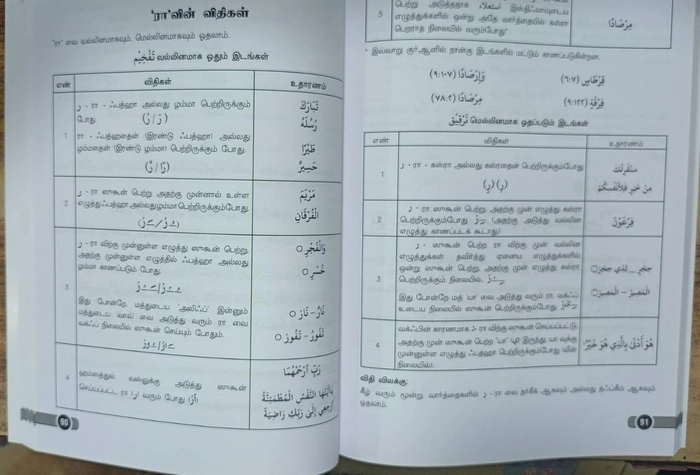 'ரா'வின் விதிகள்
'ரா' வை வல்லினமாகவும் மெல்லினமாகவும் ஓதலாம்.
تَفْخِيْم வல்லினமாக ஓதும் இடங்கள்
எண் விதிகள் உதாரணம்
1
ر - ரா - ஃபத்ஹா அல்லது ழம்மா பெற்றிருக்கும்
போது (رَ / رُ)
ரா - ஃபத்ஹதைன் (இரண்டு ஃபத்ஹா) அல்லது
ழம்மதைன் (இரண்டு ழம்மா) பெற்றிருக்கும் போது.
(رً / رٌ)
تَبَارَكَ
رُسُلُهُ
طَيْرًا
خَسِيْرٌ
2
ر - ரா ஸுகூன் பெற்று அதற்கு முன்னால் உள்ள
எழுத்து ஃபத்ஹா அல்லது ழம்மா பெற்றிருக்கும்போது.
مَرْيَمَ
الْفُرْقَانِ
3
ر - ரா விற்கு முன்னுள்ள எழுத்து ஸுகூன் பெற்று,
அதற்கு முன்னுள்ள எழுத்தில் ஃபத்ஹா அல்லது
ழம்மா காணப்படும் போது.
இது போன்றே மத்துடைய 'அலிஃப்' இன்னும்
மத்துடைய வாவ் வை அடுத்து வரும் ரா வை
வக்ஃப் நிலையில் ஸுகூன் செய்யும் போதும்.
وَالْفَجْرِ ○
خُسْرٍ ○
نَارٌ - نَارْ ○
نَفُورٌ - نَفُورْ ○
4
ஹம்ஸத்துல் வஸ்லுக்கு அடுத்து ஸுகூன்
செய்யப்பட்ட ரா வரும் போது
رَبِّ ارْحَمْهُمَا
يٰاَيَّتُهَا النَّفْسُ الْمُطْمَئِنَّةُ
ارْجِعِي إِلَى رَبِّكِ رَاضِيَةً
90
5
பெற்று அடுத்ததாக இஸ்திஃலாவுடைய
எழுத்துக்களில் ஒன்று அதே வார்த்தையில் கஸ்ரா
பெறாத நிலையில் வரும்போது"
مِرْصَادًا
இவ்வாறு குர்ஆனில் நான்கு இடங்களில் மட்டும் காணப்படுகின்றன.
قِرْطَاسٍ (٦:٧) وَإِرْصَادًا (٩:١٠٧)
فِرْقَةٍ (٩:١٢٢) مِرْصَادًا (٧٨:٢)
تَرْقِيْق மெல்லினமாக ஓதப்படும் இடங்கள்
எண் விதிகள் உதாரணம்
1
ر - ரா - கஸ்ரா அல்லது கஸ்ரதைன் பெற்றிருக்கும்போது
(رِ) (رٍ)
مِنْ خَيْرٍ فَلِأَنْفُسِكُمْ
2
ر - ரா ஸுகூன் பெற்று, அதற்கு முன் எழுத்து கஸ்ரா
பெற்றிருக்கும்போது (அதற்கு அடுத்து வல்லின
எழுத்து காணப்படக் கூடாது)
فِرْعَوْنَ
3
ر - ஸுகூன் பெற்ற ரா விற்கு முன் வல்லின
எழுத்துக்கள் தவிர்த்து ஏனைய எழுத்துக்களில்
ஒன்று ஸுகூன் பெற்று, அதற்கு முன் எழுத்து கஸ்ரா
பெற்றிருக்கும் நிலையில்.
இது போன்றே மத் 'யா' வை அடுத்து வரும் ரா, வக்ஃப்
உடைய நிலையில் ஸுகூன் பெற்றிருக்கும் போது.
4
வக்ஃபின் காரணமாக ر ரா விற்கு ஸுகூன் செய்யப்பட்டு,
அதற்கு முன் ஸுகூன் பெற்ற 'யா' இருந்து, யா வுக்கு
முன்னுள்ள எழுத்து ஃபத்ஹா பெற்றிருக்கும்போது
நிலையில்).
விதி விலக்கு:
கீழ் வரும் மூன்று வார்த்தைகளில் ر - ரா வை தர்கீக் ஆகவும் அல்லது தஃப்கீம் ஆகவும்
ஓதலாம்.
91